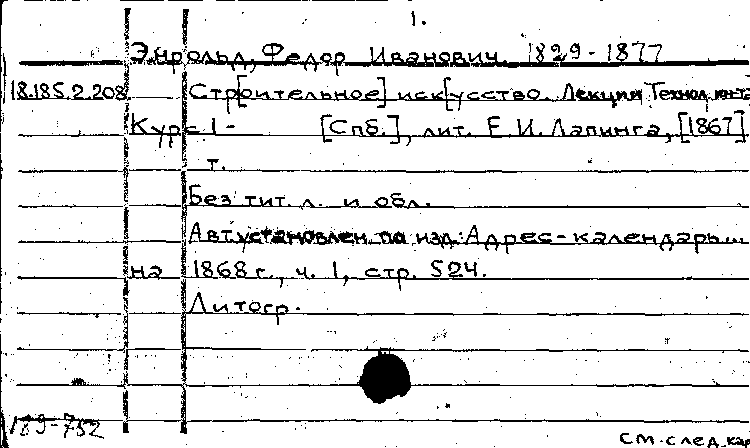 1.
Энрольд, Федор Иванович. 1829-1877
18.185.2.208 Стр[оительное] иск[усство. Лекции Технол. инта
Курс 1- [Спб.], лит. Е.И. Лапинга, [1867]
т.
Без тит. л. и обл.
Авт. установлен по изд.: Адрес-календарь...
на 1868 г., ч. 1, стр. 524.
Литогр.
189-752
см. след. кар